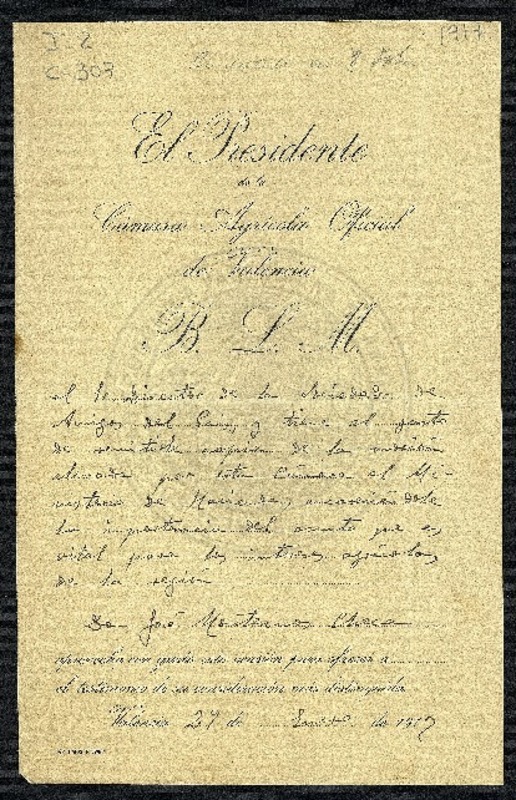 J. 2
C-307
1917
El Presidente
de la
Cámara Agrícola Oficial
de Valencia
B. L. M.
al Sr. Director de la Sociedad de
Amigos del País, y tiene el gusto
de remitirle copia de la
elevada por esta Cámara al Mi-
nisterio de Hacienda,
la importancia del asunto que es
vital para los intereses agrícolas
de la región
Don José Montesinos Checa
aprovecha con gusto esta ocasión para ofrecer a
el testimonio de su consideración más distinguida
Valencia 27 de Enero de 1917